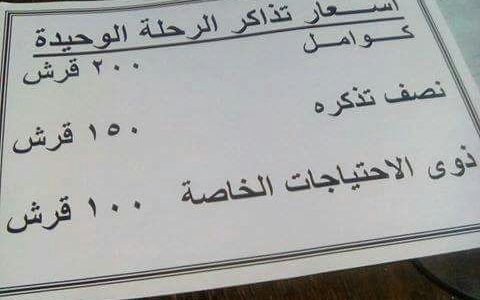 اسعار تذاكر الرحلة الوحيدة
كوامل ٢٠٠ قرش
نصف تذكره ١٥٠ قرش
ذوى الاحتياجات الخاصة ١٠٠ قرش